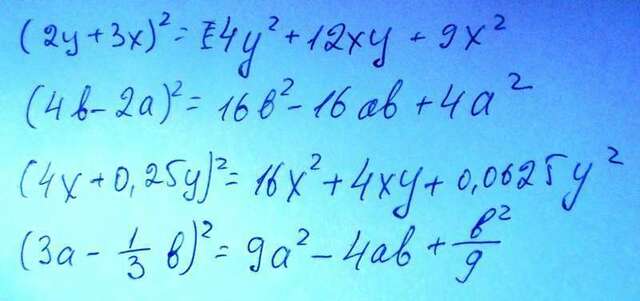 (2y+3x)²= 4y²+12xy+9x²
(4в-2a)²= 16в²-16ab+4a²
(4x+0,25y)²= 16x²+4xy+0,0625y²
(3a - 1/3 в)² = 9a²-4ab + в²/9